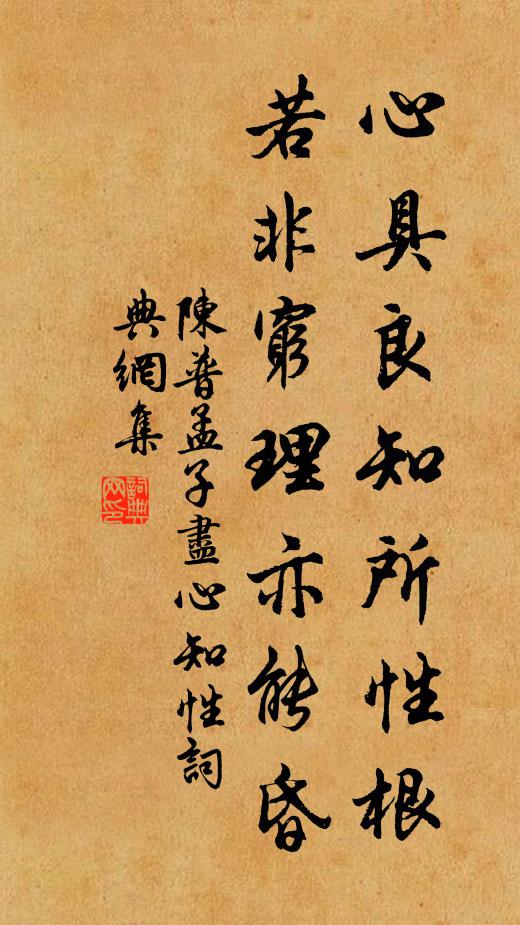 心具良知所性根
若非窮理亦能昏
陳普孟子盡心知性詞
典網集
詞典
网印